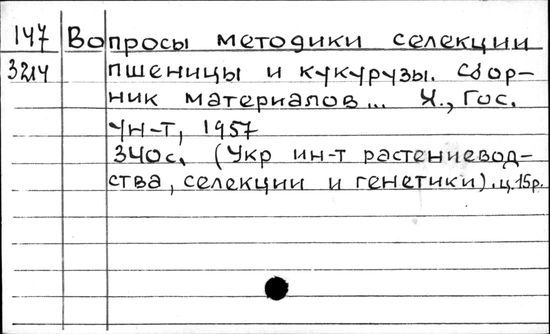 147 Вопросы методики селекции
3214 пшеницы и кукурузы. Сбор-
ник материалов... Х., Гос.
ун-т, 1957
340с. (Укр ин-т растениевод-
ства, селекции и генетики). ц.15р.